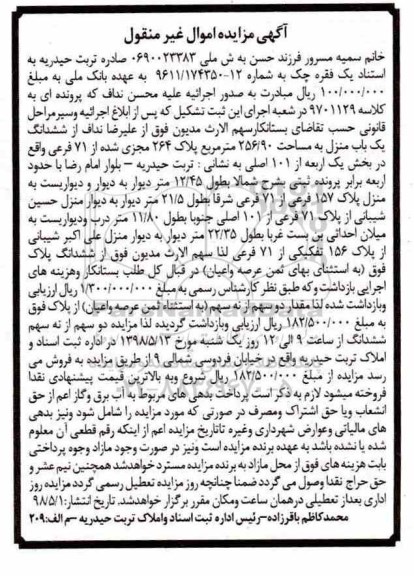 آگهی مزایده اموال غیر منقول
خانم سمیه مسرور فرزند حسن به ش ملی ۰۶۹۰۰۲۳۳۸۳ صادره تربت حیدریه به
استناد یک فقره چک به شماره ۱۲-۹۶۱۱/۱۷۴۳۵۰ به عهده بانک ملی به مبلغ
۱۰۰/۰۰۰/۰۰۰ ریال مبادرت به صدور اجرائیه علیه محسن نداف که پرونده ای به
کلاسه ۹۷۰۱۱۲۹ در شعبه اجرای این ثبت تشکیل که پس از ابلاغ اجرائیه وسیرمراحل
قانونی حسب تقاضای بستانکارسهم الارث مدیون فوق از علیرضا نداف از ششدانگ
یک باب منزل به مساحت ۲۵۶/۹۰ مترمربع پلاک ۲۶۴ مجزی شده از ۷۱ فرعی واقع
در بخش یک اربعه از ۱۰۱ اصلی به نشانی : تربت حیدریه – بلوار امام رضا با حدود
اربعه برابر پرونده ثبتی بشرح شمالا بطول ۱۲/۴۵ متر دیوار به دیوار و دیواریست به
منزل پلاک ۱۵۷ فرعی از ۷۱ فرعی شرقا بطول ۲۱/۵ متر دیوار به دیوار منزل حسین
شیبانی از پلاک ۷۱ فرعی از ۱۰۱ اصلی جنوبا بطول ۱۱/۸۰ متر درب ودیواریست به
میلان احداثی بن بست غربا بطول ۲۲/۳۵ متر دیوار به دیوار منزل علی اکبر شیبانی
از پلاک ۱۵۶ تفکیکی از ۷۱ فرعی لذا سهم الارث مدیون فوق از ششدانگ پلاک
فوق (به استثنای بهای ثمن عرصه واعیان) در قبال کل طلب بستانکار وهزینه های
اجرایی بازداشت و که طبق نظر کارشناس رسمی به مبلغ ۱/۳۰۰/۰۰۰/۰۰۰ ریال ارزیابی
وبازداشت شده لذا مقدار دو سهم از نه سهم (به استثناء ثمن عرصه واعیان) از پلاک فوق
به مبلغ ۱۸۲/۵۰۰/۰۰۰ ریال ارزیابی وبازداشت گردیده لذا مزایده دو سهم از نه سهم
ششدانگ از ساعت ۹ الی ۱۲ روز یک شنبه مورخ ۱۳۹۸/۵/۱۳ در اداره ثبت اسناد و
املاک تربت حیدریه واقع در خیابان فردوسی شمالی ۹ از طریق مزایده به فروش می
رسد مزایده از مبلغ ۱۸۲/۵۰۰/۰۰۰ ریال شروع وبه بالاترین قیمت پیشنهادی نقدا
فروخته میشود لازم به ذکر است پرداخت بدهی های مربوط به آب برق وگاز اعم از حق
انشعاب ویا حق اشتراک ومصرف در صورتی که مورد مزایده را شامل شود ونیز بدهی
های مالیاتی وعوارض شهرداری وغیره تاتاریخ مزایده اعم از اینکه رقم قطعی آن معلوم
شده یا نشده باشد به عهده برنده مزایده است ونیز در صورت وجود مازاد وجوه پرداختی
بابت هزینه های فوق از محل مازاد به برنده مزایده مسترد خواهدشد همچنین نیم عشر و
حق حراج نقدا وصول می گردد ضمنا چنانچه روز مزایده تعطیل رسمی گردد مزایده روز
اداری بعداز تعطیلی درهمان ساعت ومکان مقرر برگزار خواهدشد. تاریخ انتشار: ۹۸/۵/۱
محمدکاظم باقرزاده–رئیس اداره ثبت اسناد واملاک تربت حیدریه –م الف:۲۰۹